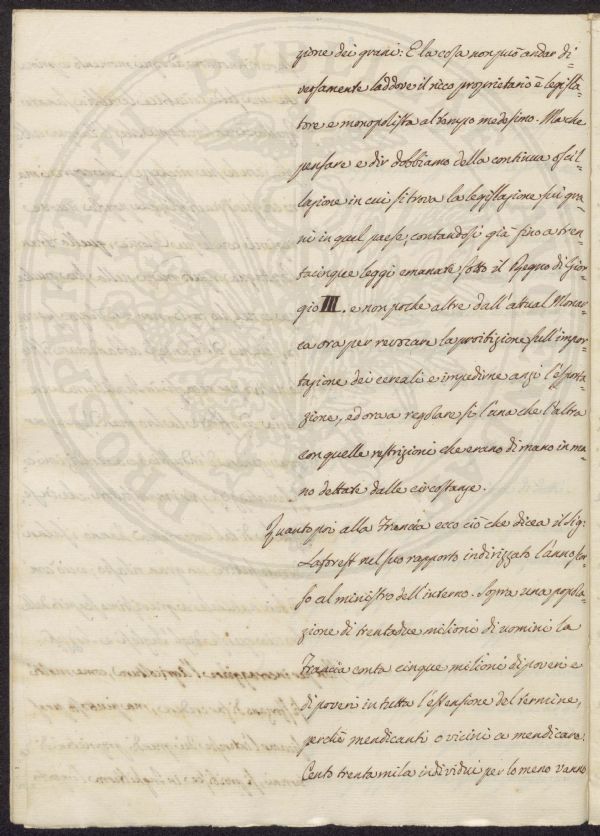 zione dei grani: E la cosa non può andar di=
versamente laddove il ricco proprietario è legisla=
tore e monopolista al tempo medesimo. Ma che
pensare e dir dobbiamo della continua oscil=
lazione in cui si trova la legislazione sui gra=
ni in quel paese, contandosi già fino a tren=
tacinque leggi emanate sotto il Regno di Gior=
gio III. e non poche altre dall'attual Monar=
ca ora per revocare la proibizione sull'impor=
tazione dei cereali e impedirne anzi l'esporta=
zione, ed ora a regolare sì l'una che l'altra
con quelle restrizioni che erano di mano in ma=
no dettate dalle circostanze.
Quanto poi alla Francia ecco ciò che dicea il Sig:
Laforest nel suo rapporto indirizzato l'anno scor=
so al ministro dell'interno. Sopra una popola=
zione di trentadue milioni di uomini la
Francia conta cinque milioni di poveri e
di poveri in tutta l'estensione del termine,
perchè mendicanti o vicini a mendicare.
Cento trenta mila individui per lo meno vanno
PROSPERITAT PUBL